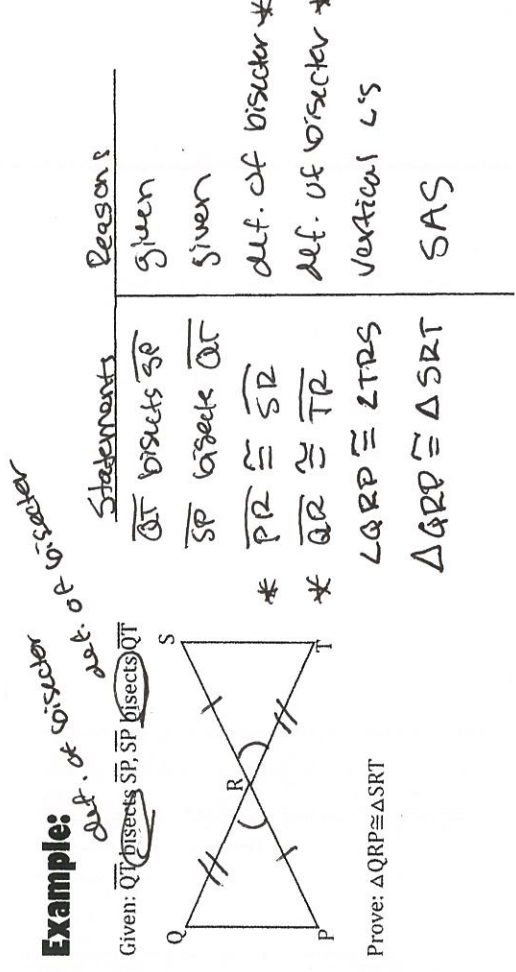 Example:
def. of bisector
def. of bisector
Given: Q͞T bisects S͞P, S͞P bisects Q͞T
Q
S
R
P
T
Prove: △QRP≅△SRT
Statements Reasons
Q͞T bisects S͞P given
S͞P bisects Q͞T given
* P͞R ≅ S͞R def. of bisector *
* Q͞R ≅ T͞R def. of bisector *
∠QRP ≅ ∠TRS vertical ∠'s
△QRP ≅ △SRT SAS